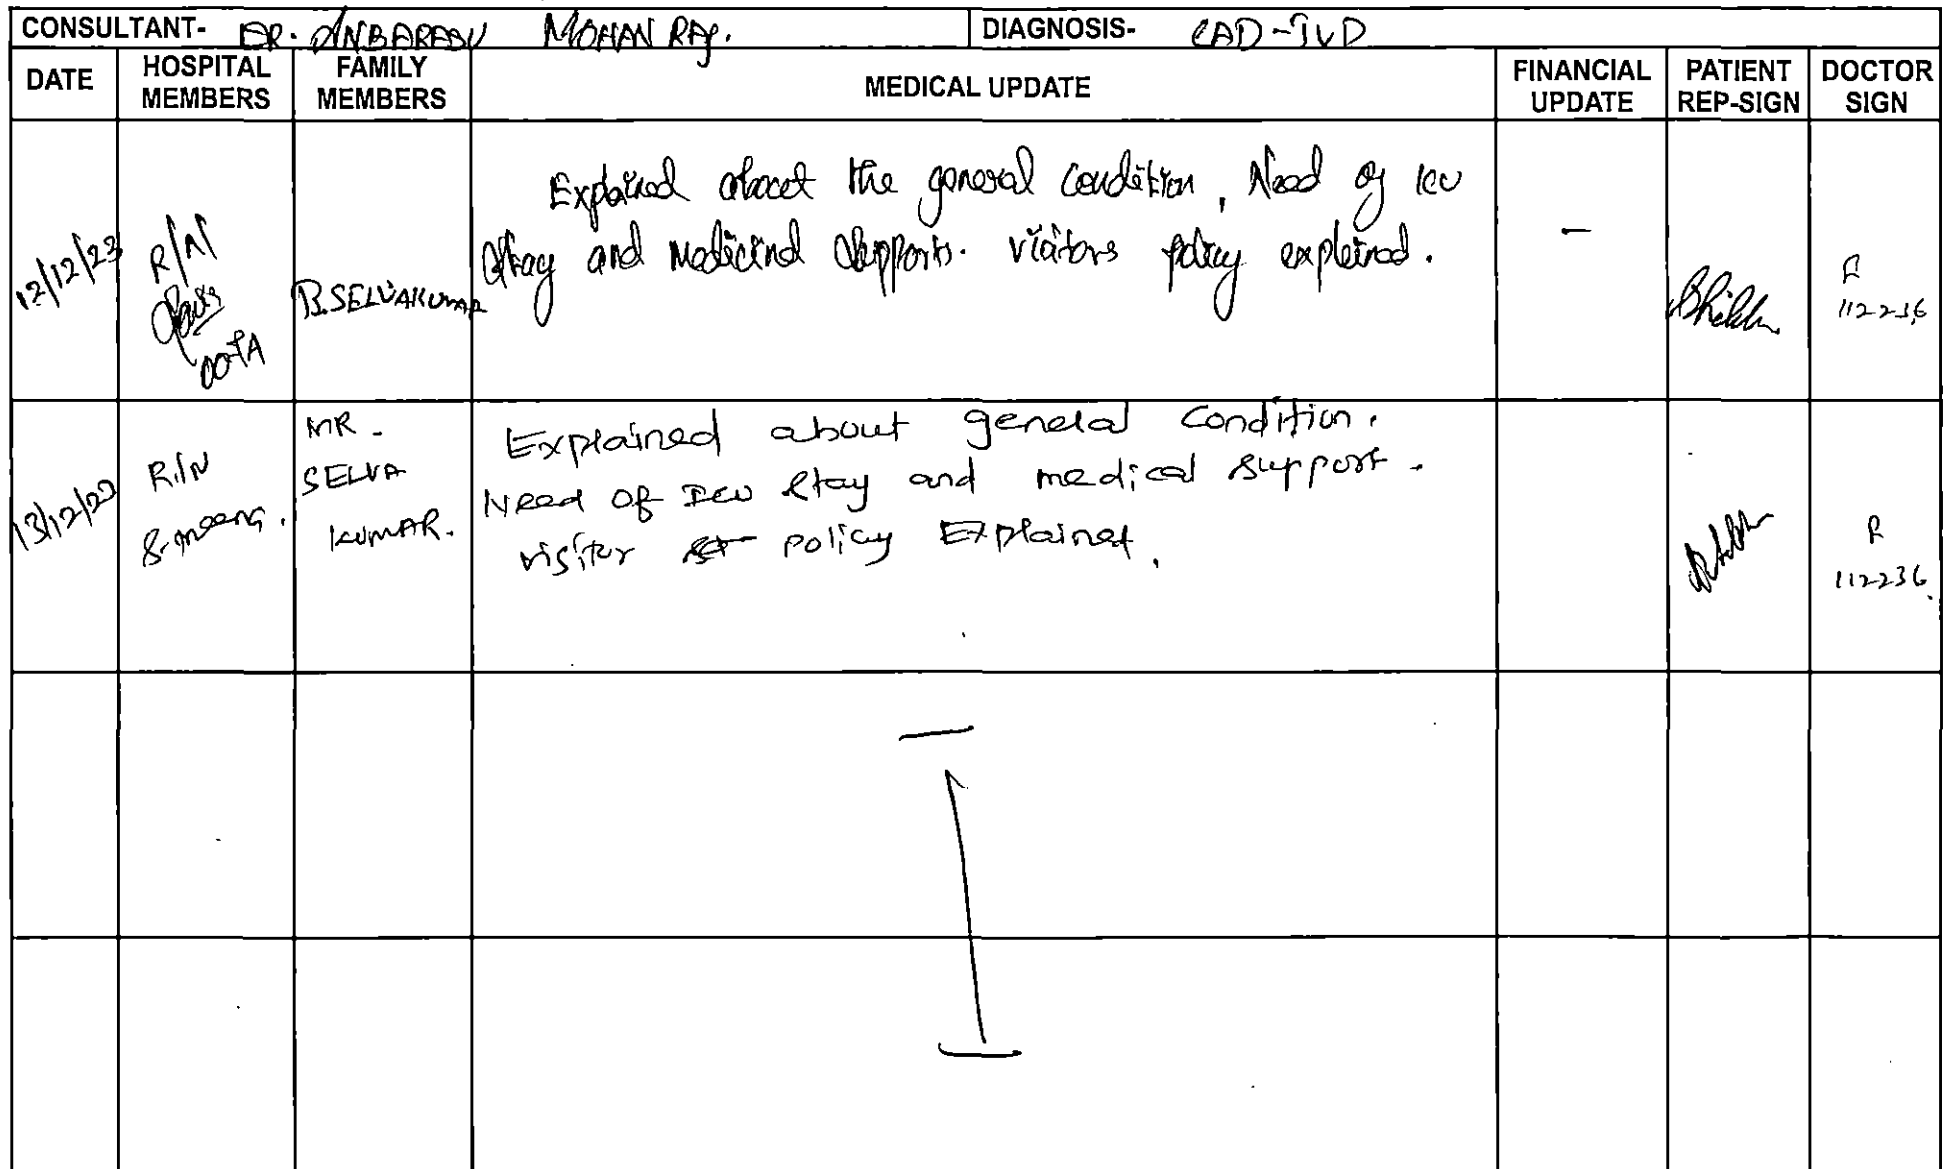 CONSULTANT- DR. ANBARASU MOHAN RAJ. DIAGNOSIS- CAD-TVD
DATE HOSPITAL MEMBERS FAMILY MEMBERS MEDICAL UPDATE FINANCIAL UPDATE PATIENT REP-SIGN DOCTOR SIGN
12/12/23 R/N B.SELVAKUMAR
Explained about the general condition, Need of ICU
stay and medicind supports. visitors policy explained.
-
R
112236
13/12/23 R/N
MR.
SELVA
KUMAR.
Explained about general condition.
Need of ICU stay and medical support.
visitor policy Explained.
R
112236